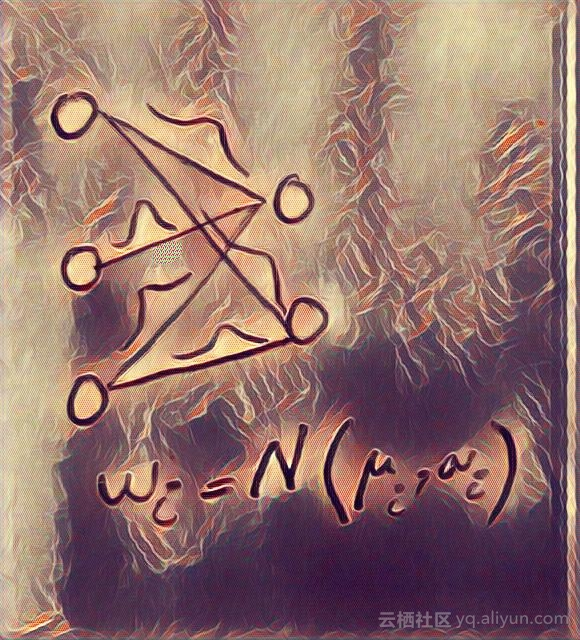 w_i = N(μ_i, α_i)
云栖社区 yq.aliyun.com